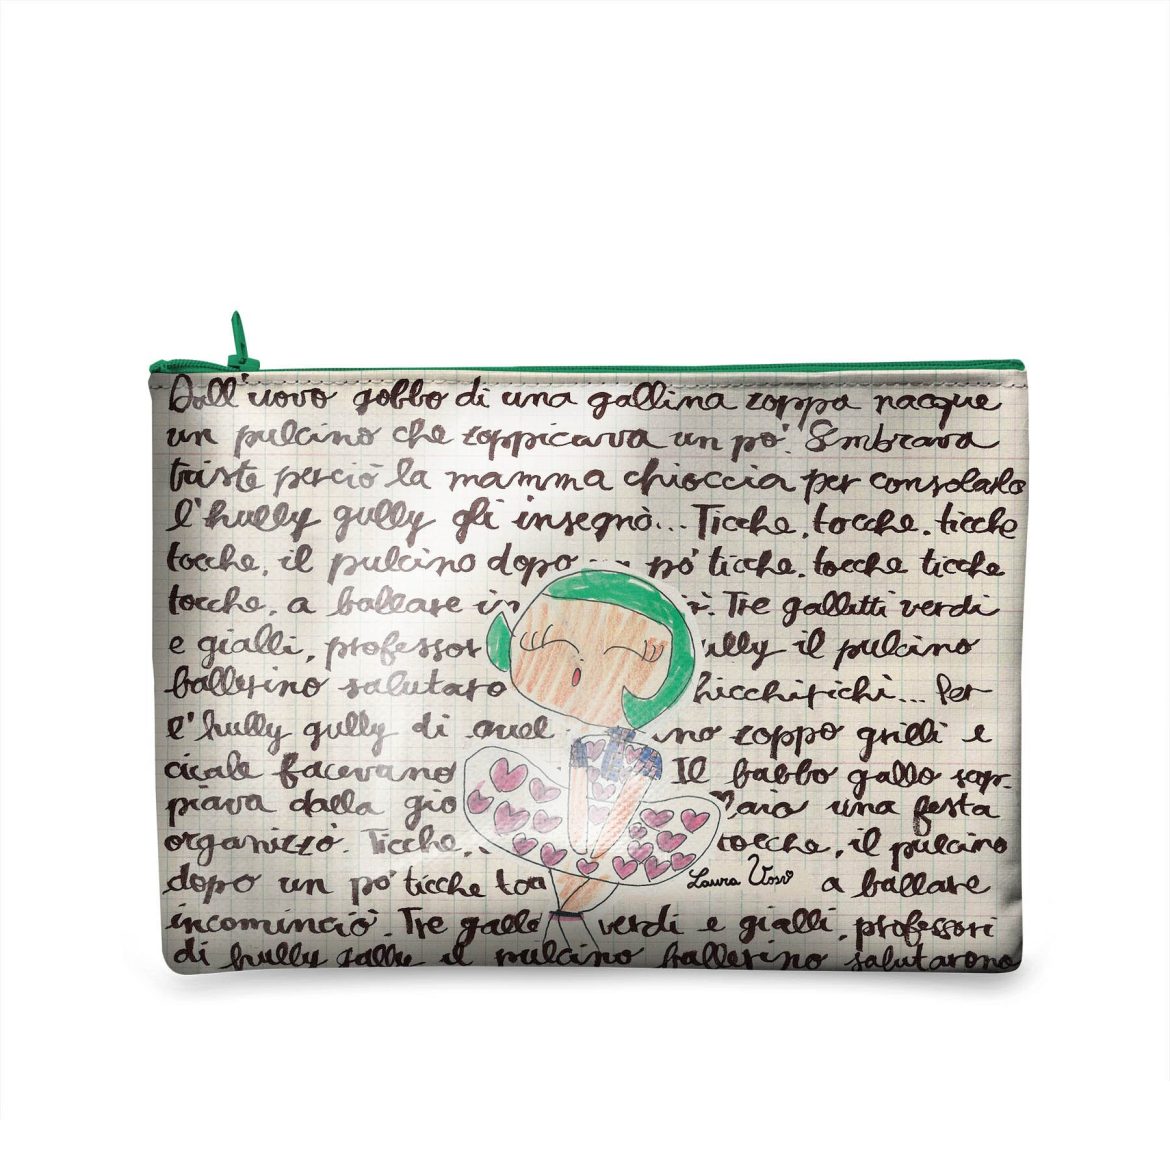 Dall'uovo gobbo di una gallina zoppa nacque
un pulcino che zoppicava un po'. Sembrava
triste perciò la mamma chioccia per consolarlo
l'hully gully gli insegnò... Ticche, tocche, ticche
tocche, il pulcino dopo pò ticche, tocche ticche
tocche, a ballare in Tre galletti verdi
e gialli, professor ully il pulcino
ballerino salutaro hicchirichì... Per
l'hully gully di quel no zoppo grilli e
cicale facevano Il babbo gallo scop-
piava dalla gio aio una festa
organizzò. Ticche, tocche, il pulcino
dopo un pò ticche toc a ballare
Laura Vosi
incominciò. Tre galle verdi e gialli, professori
di hully gully il pulcino ballerino salutarono